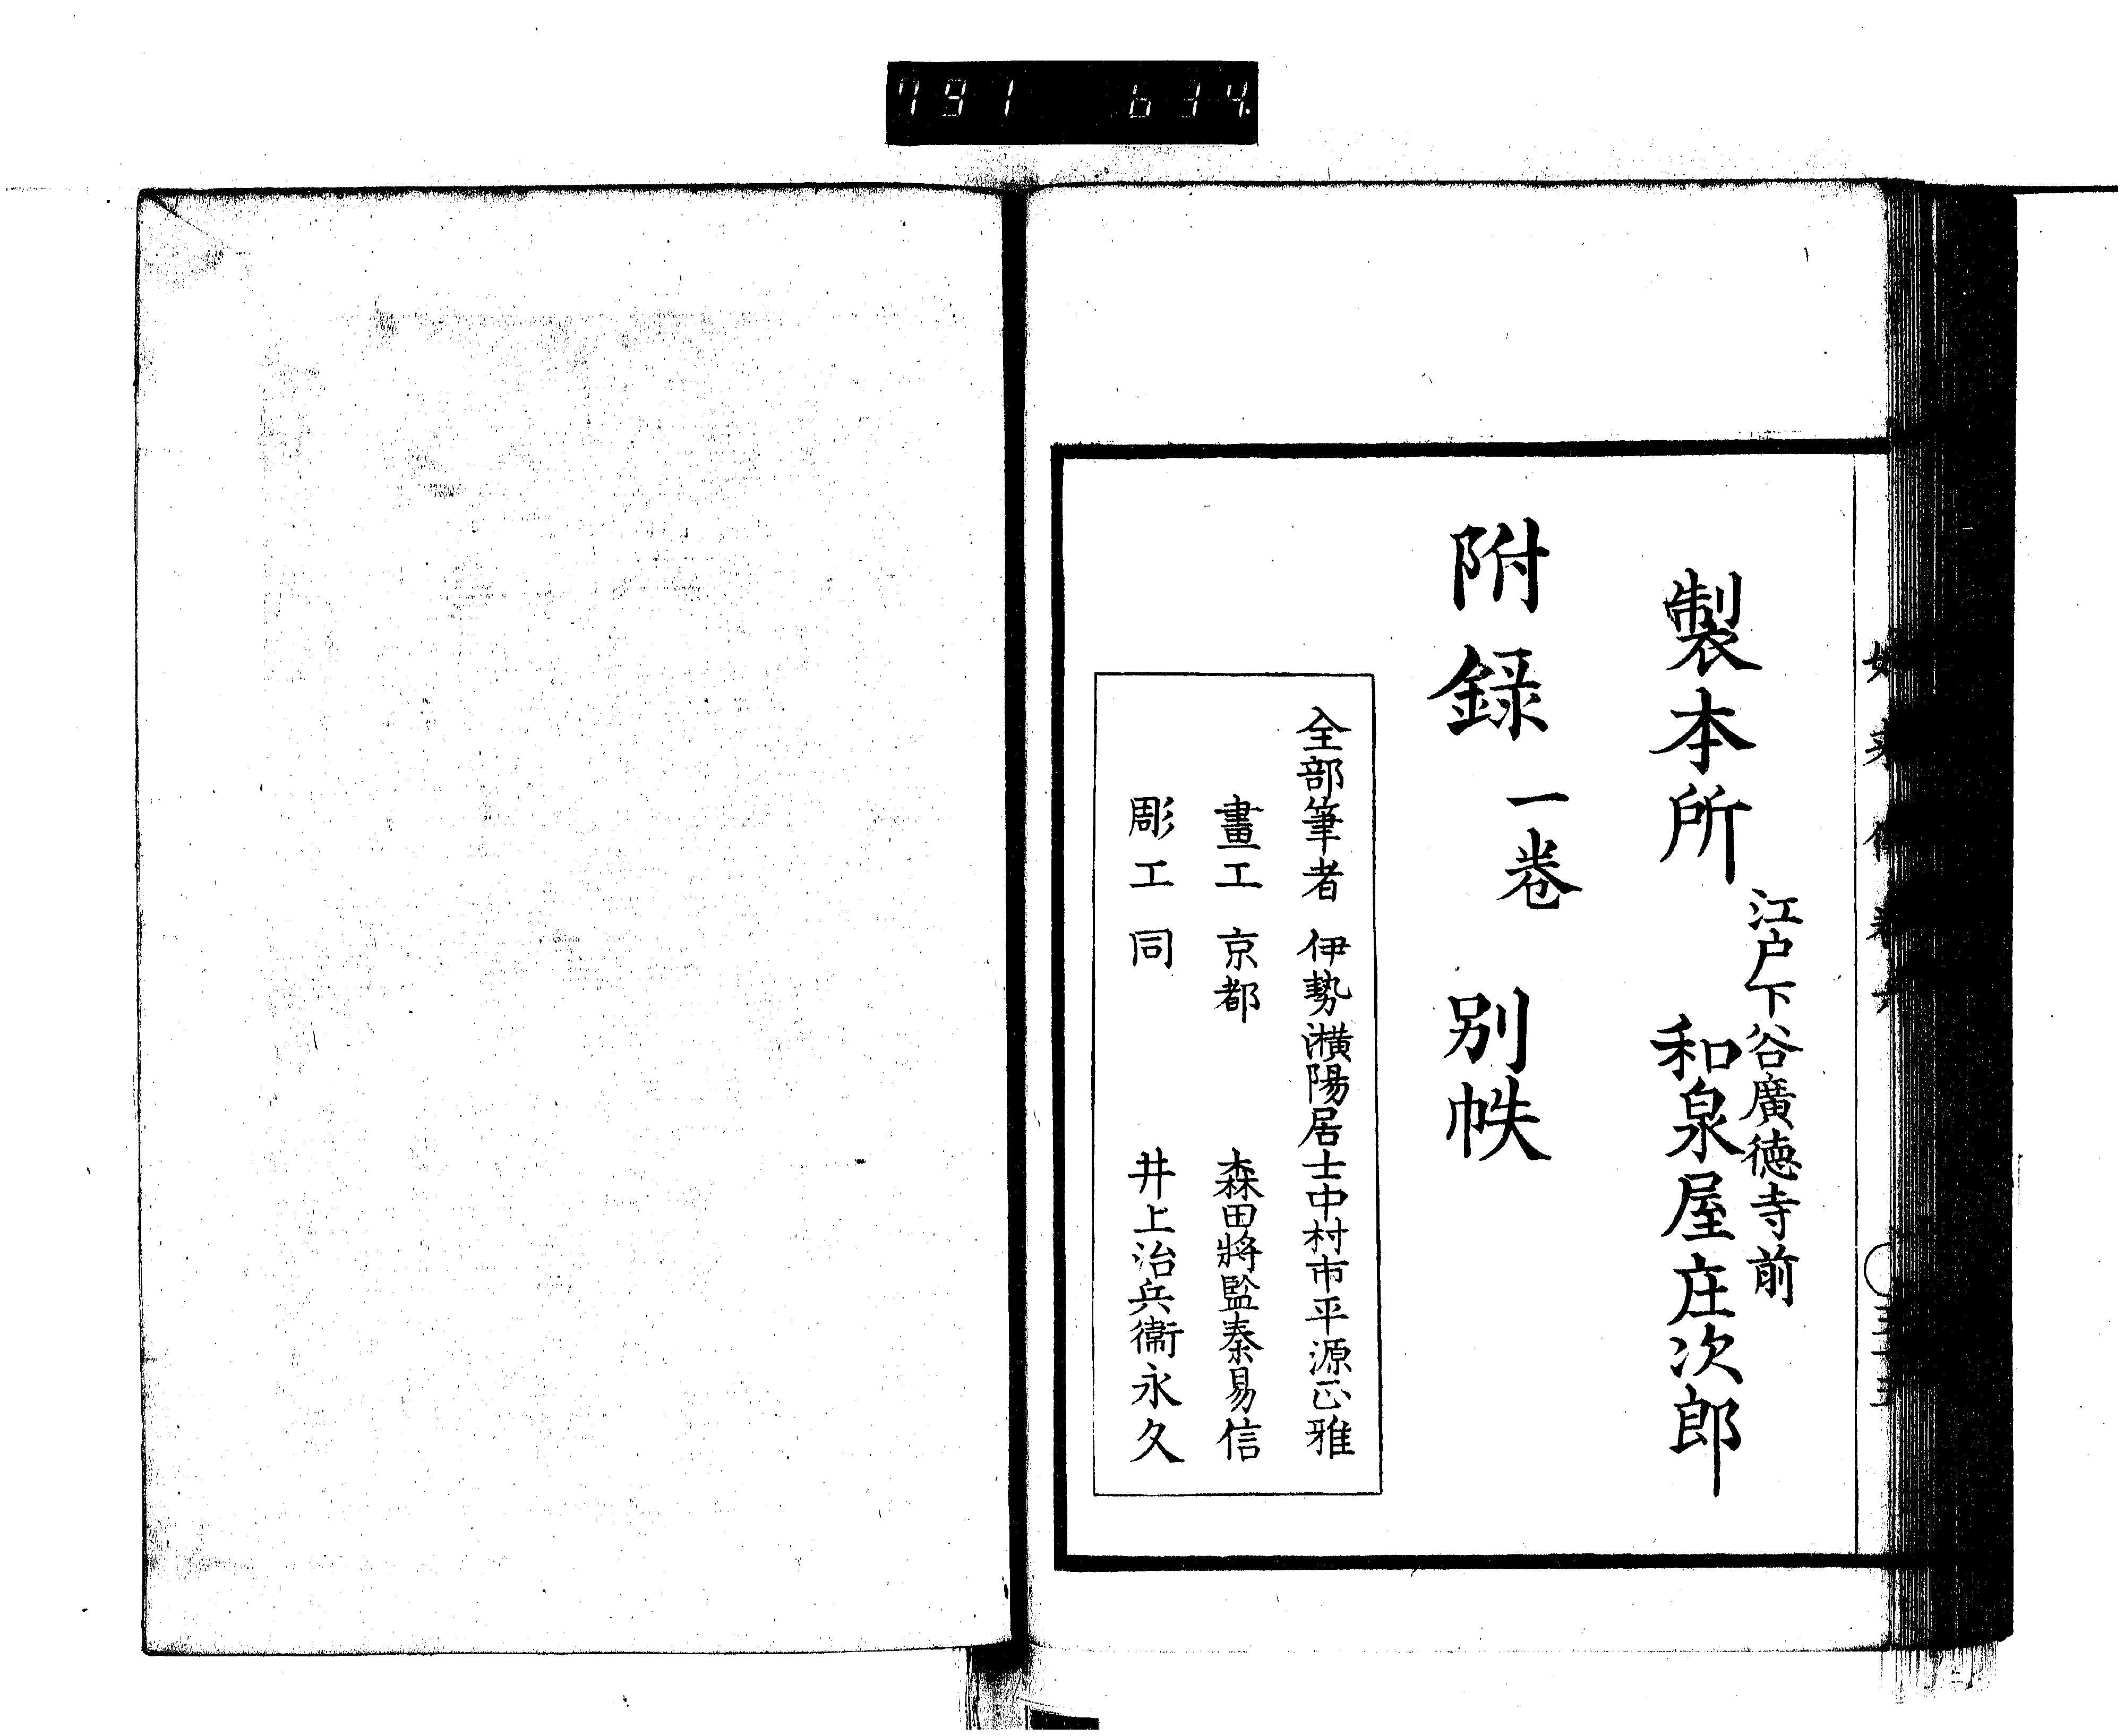 791 634
製本所 江戸下谷廣徳寺前 和泉屋庄次郎
附録 一巻 別帙
全部筆者 伊勢濱陽居士中村市平源正雅
畫工 京都 森田將監秦易信
彫工 同 井上治兵衞永久